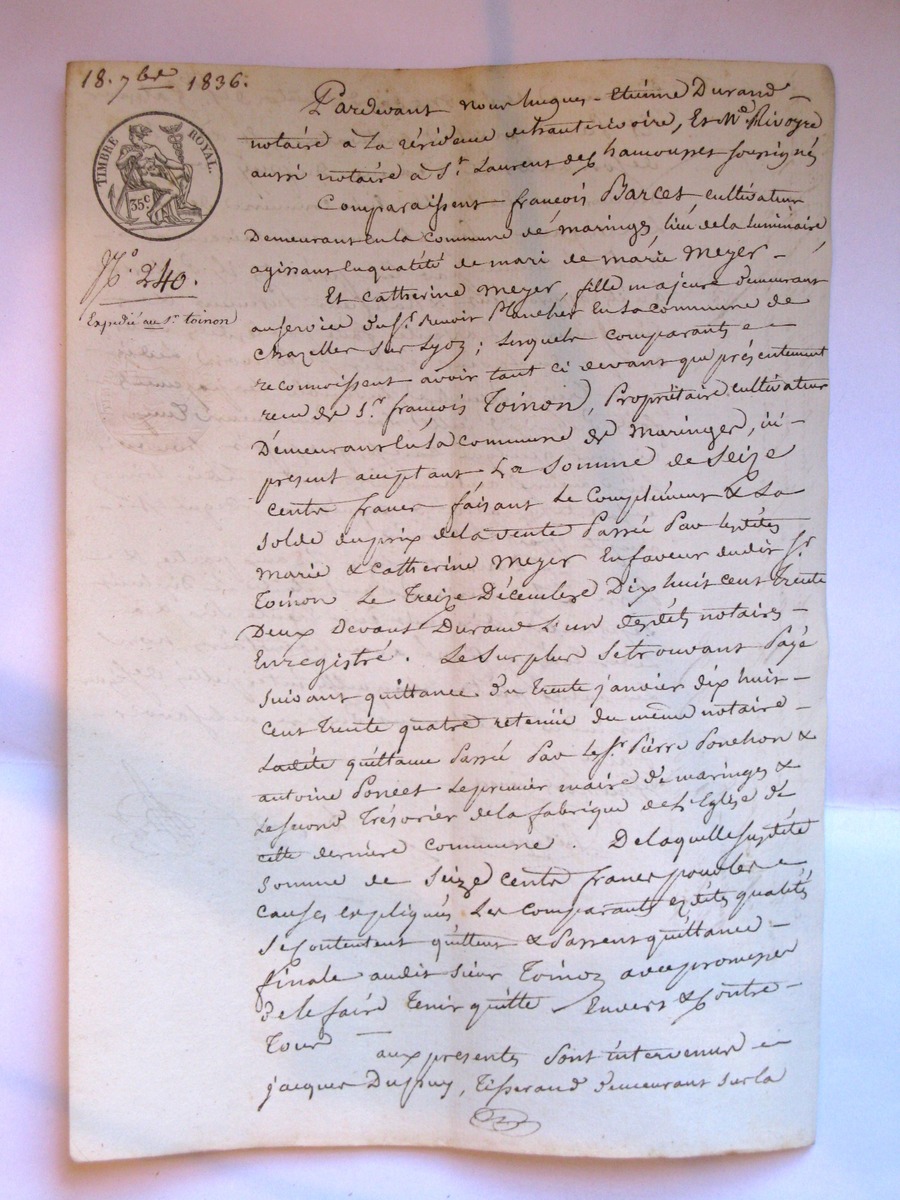 18. 7bre 1836.
TIMBRE ROYAL.
35c
No. 240.
Expédié au Sr. toinon
Pardevant nous hugues-Etienne Durand
notaire à La résidence de hauterivoire, Et Me. Rivoyre
aussi notaire à St. Laurent de Chamousset soussignés
Comparaissent françois Barcet cultivateur
Demeurant en la commune de maringes, lieu de la Luminaire
agissant En qualité de mari de marie meyer
Et Catherine meyer, fille majeure demeurant
au service du Sr. Benoit Plancher En la commune de
Chazelles sur Lyon ; Lesquels comparants
reconnoissent avoir tant ci devant que présentement
reçu de Sr. françois Toinon, Propriétaire cultivateur
Demeurant En la commune de Maringes, ici
present acceptant La Somme de Seize
cents francs faisant Le Complément & La
solde du prix de la vente Passée Par lesdites
marie & Catherine meyer En faveur dudit Sr.
Toinon Le Treize Décembre Dix huit cent Trente
Deux Devant Durand L'un desdits notaires
Enregistré. Le Surplus Se trouvant Payé
suivant quittance du trente janvier dix huit
cent trente quatre retenue du même notaire
Ladite quittance Passée Par le Sr. Pierre Ponchon &
antoine Poncet Le premier maire de maringes &
Le second Trésorier de la fabrique de L'Eglise de
cette derniere commune. De laquelle susdite
Somme de Seize cents francs pour les
causes expliquées Les comparants esdites qualités
Se contentent quittent & Passent quittance
finale audit sieur Toinon avec promesse
de le faire Tenir quitte Envers & Contre
Tous aux presentes Sont intervenus
jacques Dupuy, Tisserand demeurant sur la